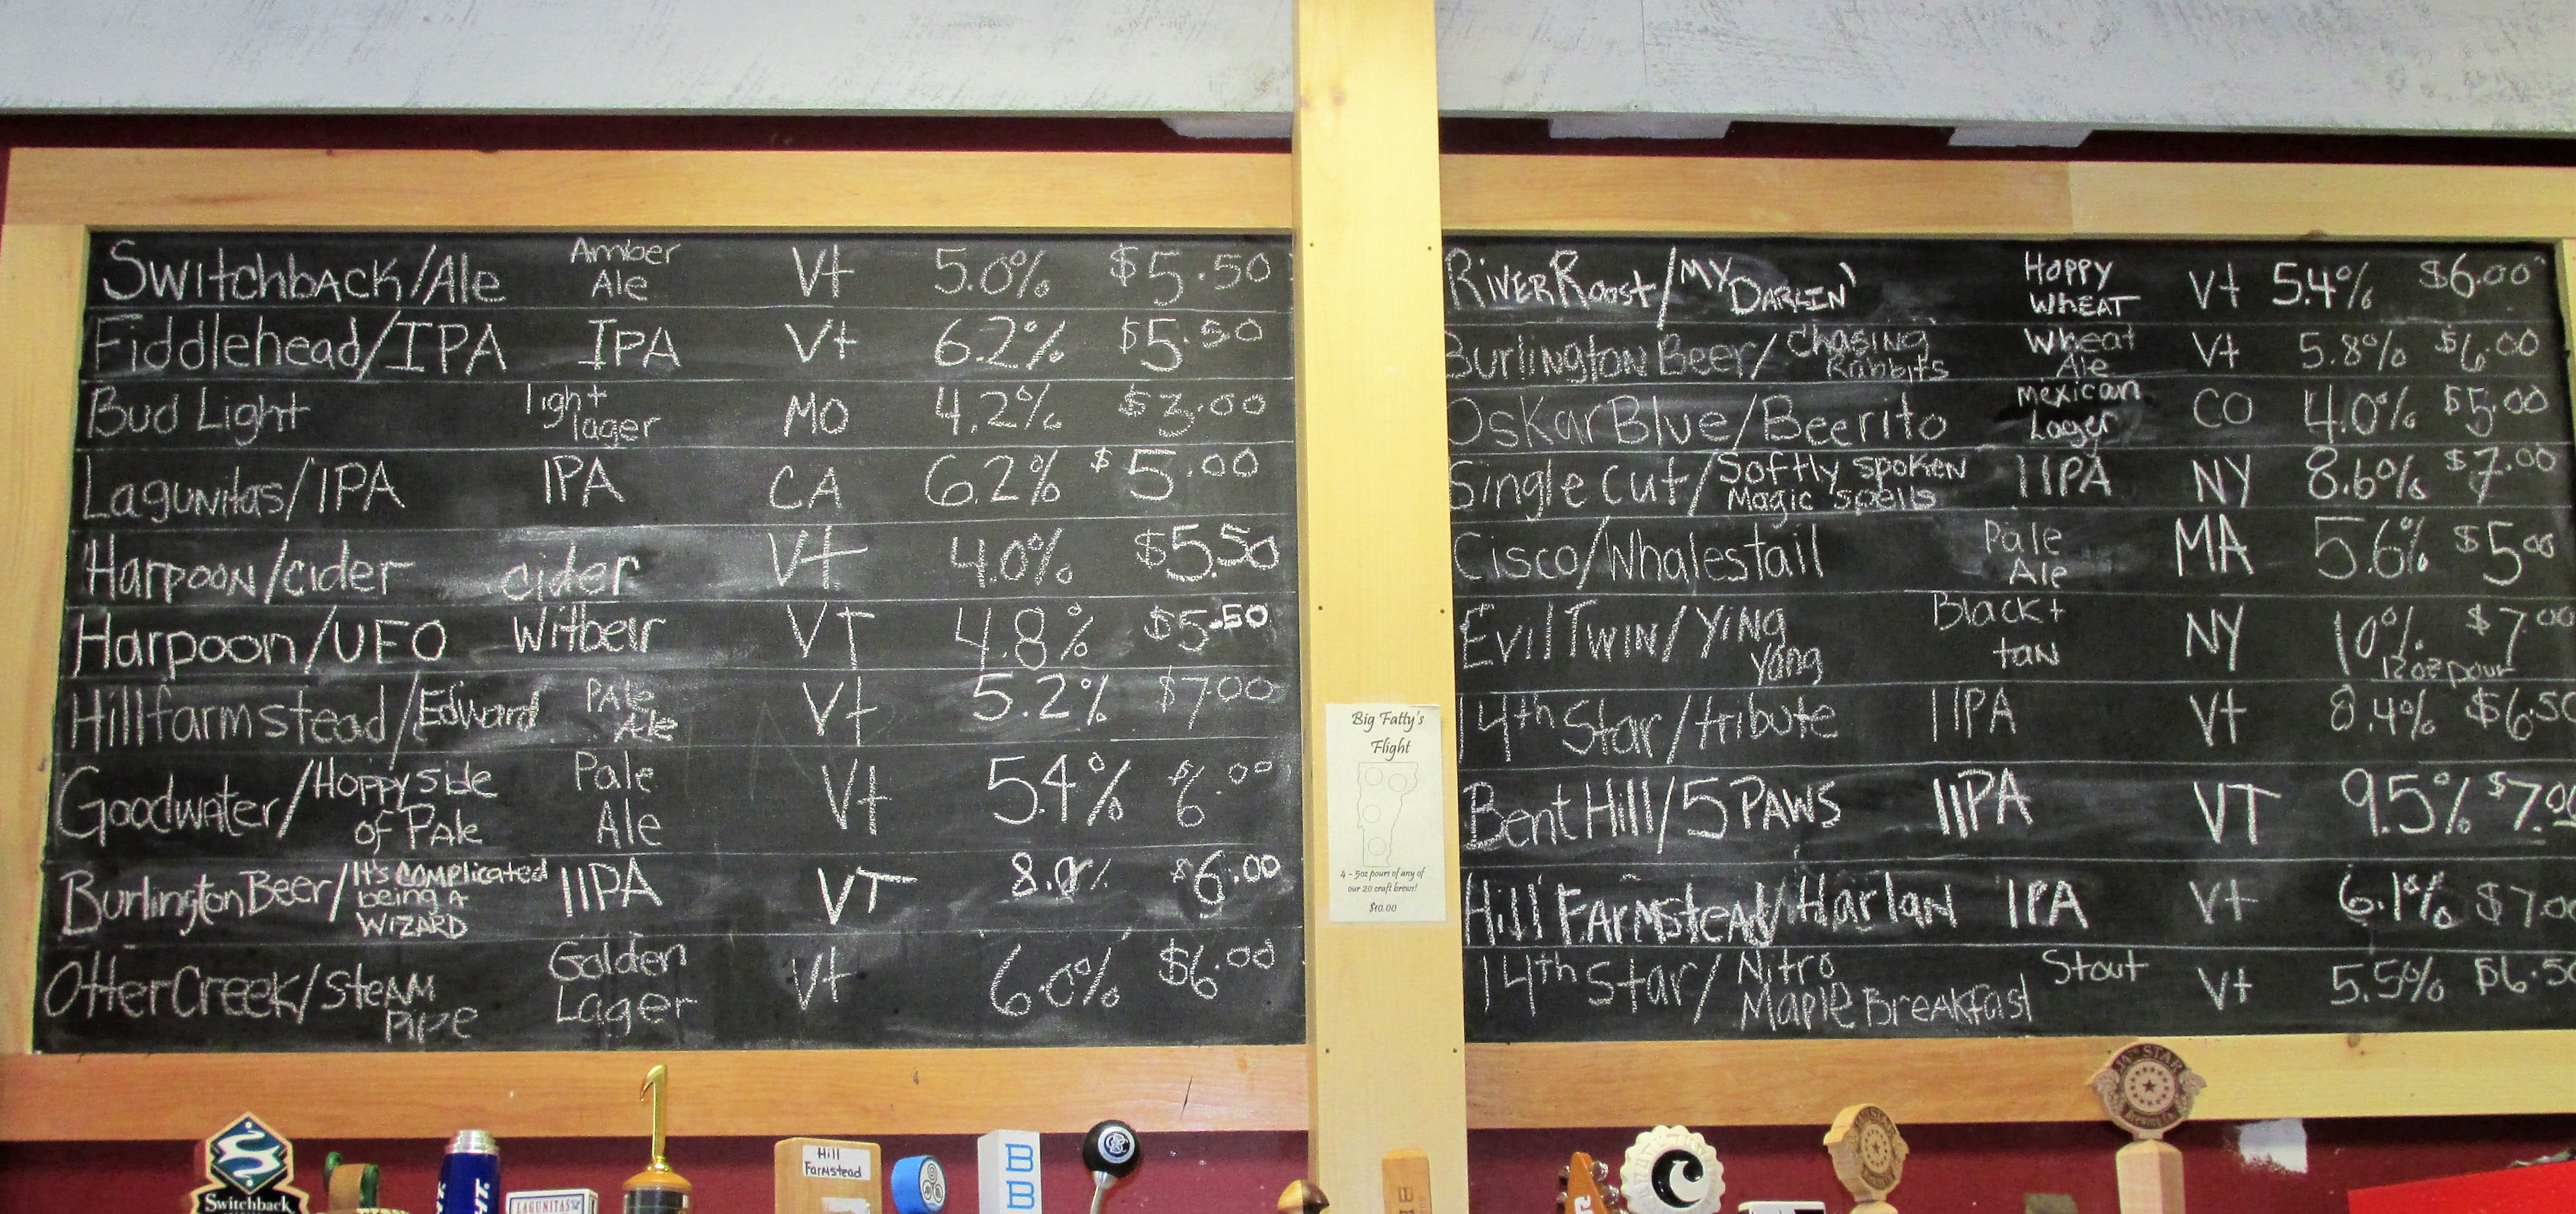 Switchback/Ale Amber Ale Vt 5.0% $5.50
Fiddlehead/IPA IPA Vt 6.2% $5.50
Bud Light light lager MO 4.2% $3.00
Lagunitas/IPA IPA CA 6.2% $5.00
Harpoon/cider cider Vt 4.0% $5.50
Harpoon/UFO Witbeir VT 4.8% $5.50
Hillfarmstead/Edward Pale Ale Vt 5.2% $7.00
Goodwater/Hoppy side of Pale Pale Ale Vt 5.4% $6.00
Burlington Beer/It's complicated being a WIZARD IIPA VT 8.0% $6.00
Otter Creek/Steam Pipe Golden Lager Vt 6.0% $6.00
River Roost/MY DARLIN' Hoppy WHEAT Vt 5.4% $6.00
Burlington Beer/Chasing Rabbits Wheat Ale Vt 5.8% $6.00
Oskar Blue/Beerito mexican Lager CO 4.0% $5.00
Single Cut/Softly spoken Magic spells IIPA NY 8.6% $7.00
Cisco/Whalestail Pale Ale MA 5.6% $5.00
Evil Twin/Ying Yang Black + tan NY 10% 12oz pour $7.00
14th Star/tribute IIPA Vt 8.4% $6.50
Bent Hill/5 PAWS IIPA VT 9.5% $7.00
Hill Farmstead/Harlan IPA Vt 6.1% $7.00
14th Star/Nitro Maple Breakfast Stout Vt 5.5% $6.50
Big Fatty's
Flight
4 - 5oz pours of any of
our 20 craft brews!
$10.00
Switchback
LAGUNITAS
Hill
Farmstead
B
B